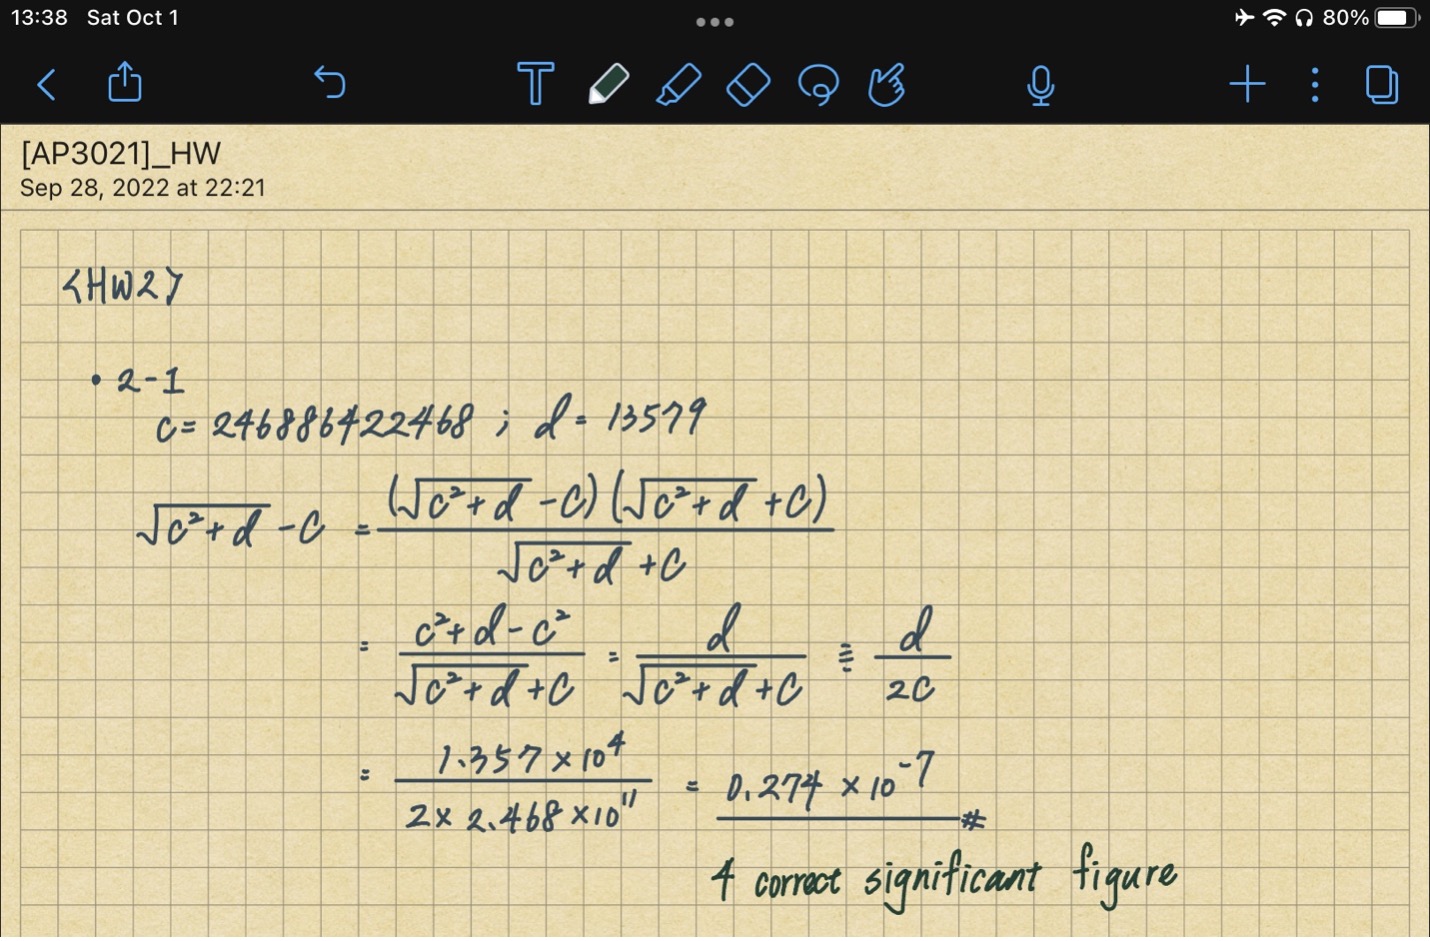 13:38 Sat Oct 1 80%
[AP3021]_HW
Sep 28, 2022 at 22:21
<HW2>
• 2-1
c = 246886422468 ; d = 13579
√(c²+d) - c = (√(c²+d) - c)(√(c²+d) + c) / (√(c²+d) + c)
= (c²+d-c²) / (√(c²+d) + c) = d / (√(c²+d) + c) ≡ d / 2c
= 1.357 × 10⁴ / 2 × 2.468 × 10¹¹ = 0.274 × 10⁻⁷ #
4 correct significant figure